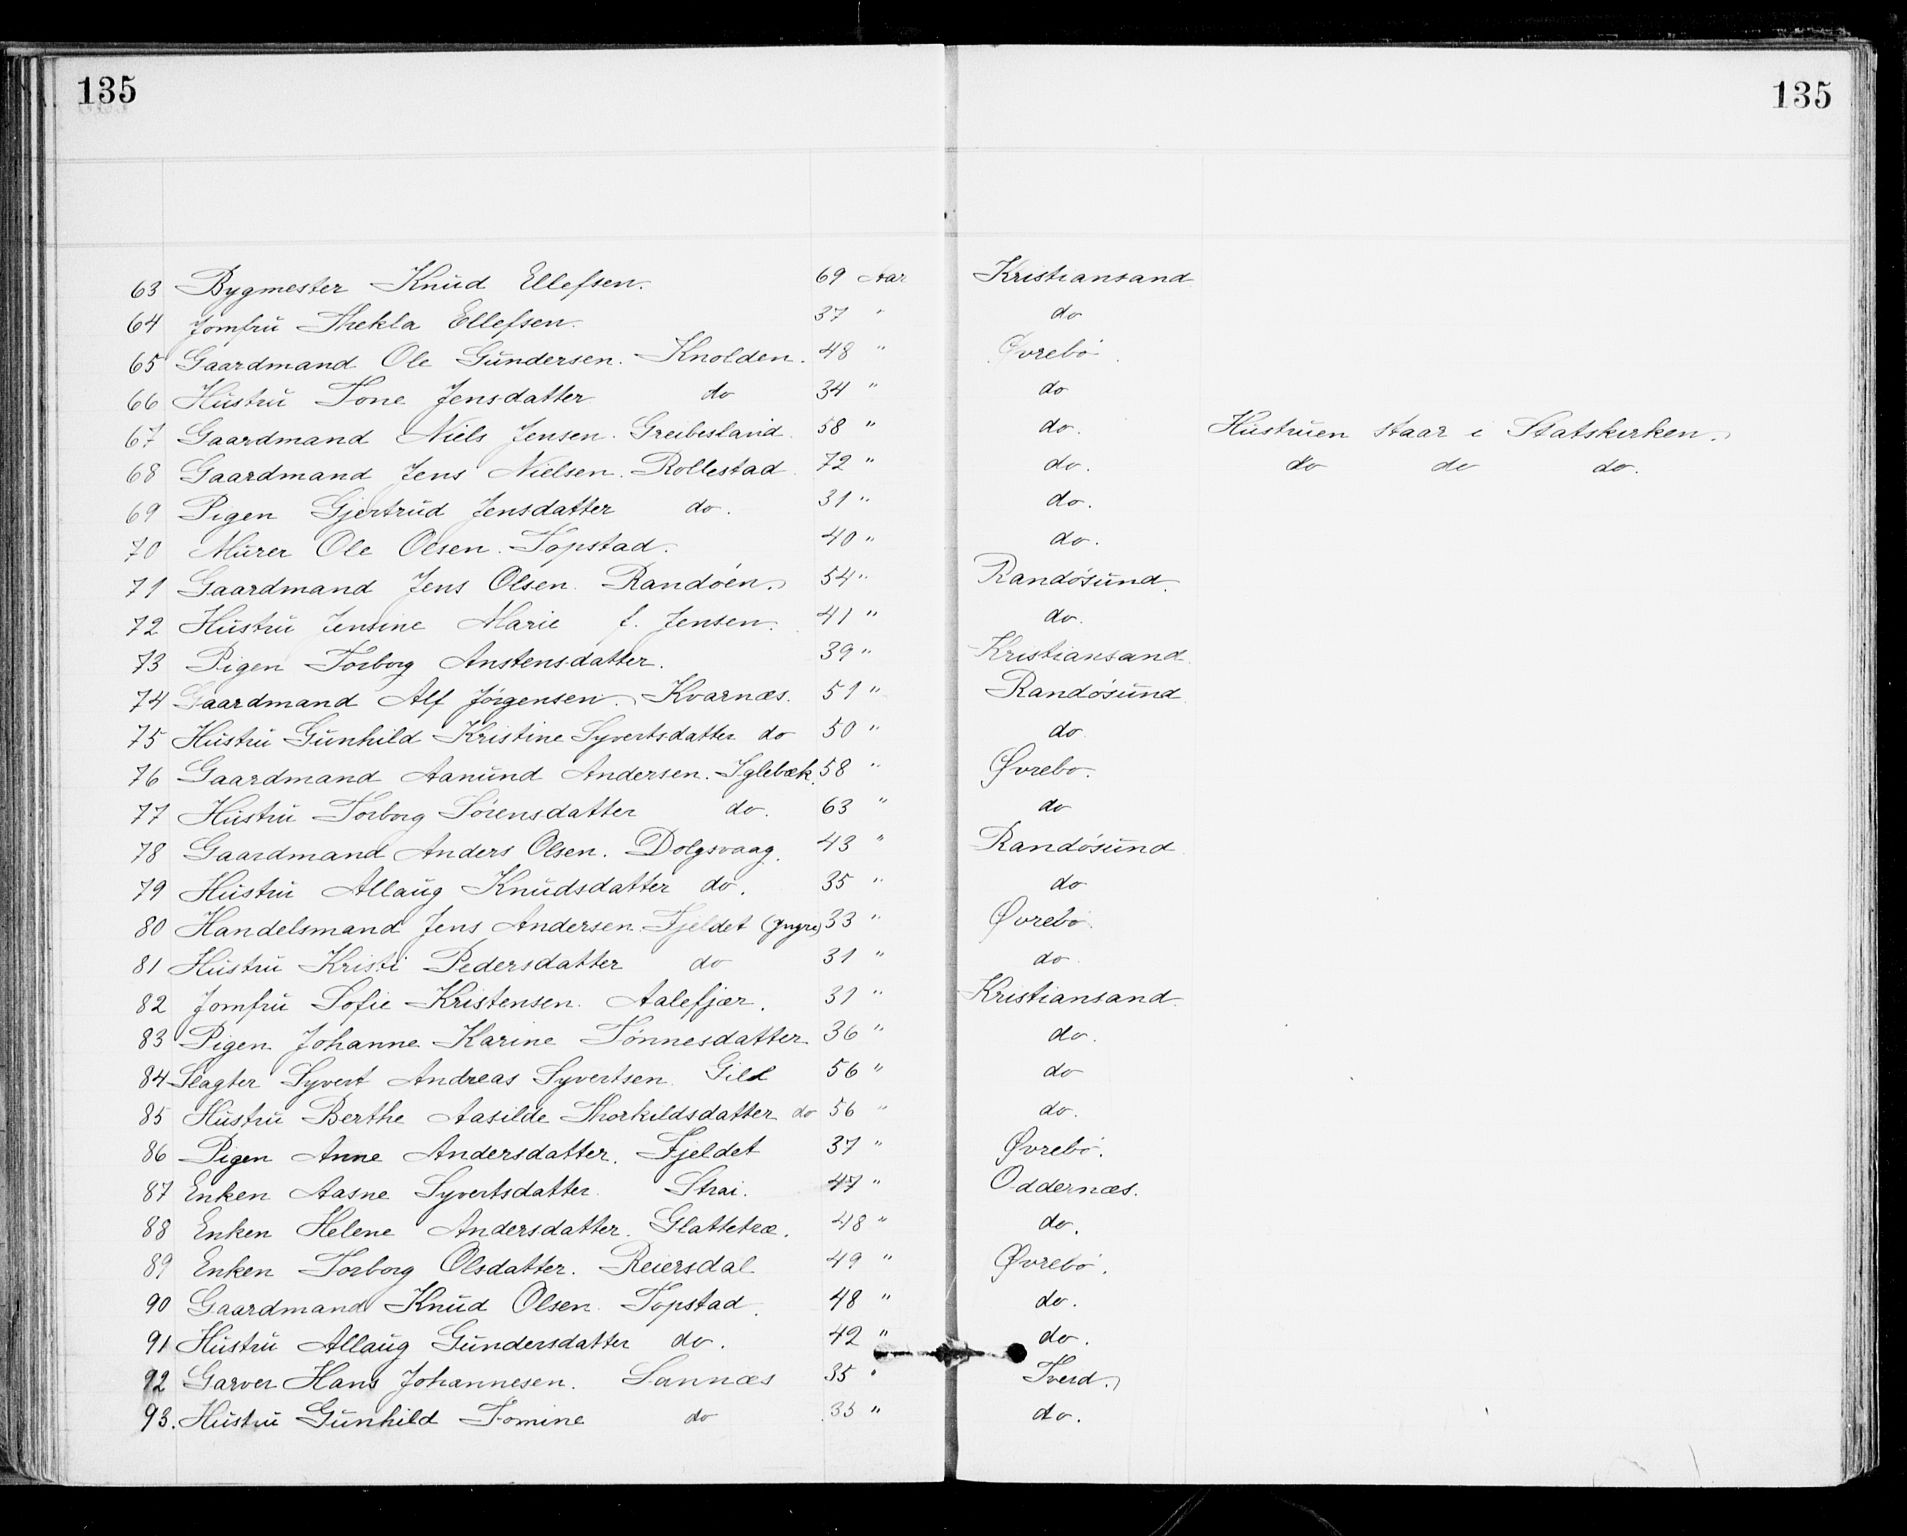 135 135
63 Bygmester Knud Ellefsen. 69 Aar Kristiansand
64 Jomfru Thekla Ellefsen. 37 " do
65 Gaardmand Ole Gundersen. Knolden. 48 " Øvrebø.
66 Hustru Tone Jensdatter do 34 " do
67 Gaardmand Niels Jensen. Greibesland. 58 " do. Hustruen staar i Statskirken.
68 Gaardmand Jens Nielsen. Rollestad 72 " do. do do do.
69 Pigen Gjertrud Jensdatter do. 31 " do.
70 Murer Ole Olsen. Topstad. 40 " do.
71 Gaardmand Jens Olsen. Randøen. 54 " Randøsund.
72 Hustru Jensine Marie f. Jensen. 41 " do.
73 Pigen Torborg Anstensdatter. 39 " Kristiansand.
74 Gaardmand Alf Jørgensen. Kvarnæs. 51 " Randøsund
75 Hustru Gunhild Kristine Syvertsdatter do 50 " do
76 Gaardmand Aanund Andersen. Iglebæk. 58 " Øvrebø.
77 Hustru Torborg Sørensdatter do. 63 " do
78 Gaardmand Anders Olsen. Dolgsvaag. 43 " Randøsund
79 Hustru Allaug Knudsdatter do. 35 " do
80 Handelsmand Jens Andersen Fjeldet (Yngre) 33 " Øvrebø.
81 Hustru Kristi Pedersdatter do 31 " do.
82 Jomfru Sofie Kristensen. Aalefjær. 31 " Kristiansand.
83 Pigen Johanne Karine Tønnesdatter 36 " do.
84 Slagter Syvert Andreas Syvertsen. Gill 56 " do
85 Hustru Berthe Aasilde Thorkildsdatter do 56 " do.
86 Pigen Anne Andersdatter. Fjeldet 37 " Øvrebø.
87 Enken Aasne Syvertsdatter. Strai. 47 " Oddernæs.
88 Enken Helene Andersdatter. Glattetræ. 48 " do.
89 Enken Torborg Olsdatter. Reiersdal 49 " Øvrebø.
90 Gaardmand Knud Olsen. Topstad. 48 " do.
91 Hustru Allaug Gundersdatter do. 42 " do.
92 Garver Hans Johannesen. Sannæs 35 " Tverd.
93. Hustru Gunhild Tomine do 35 " do.